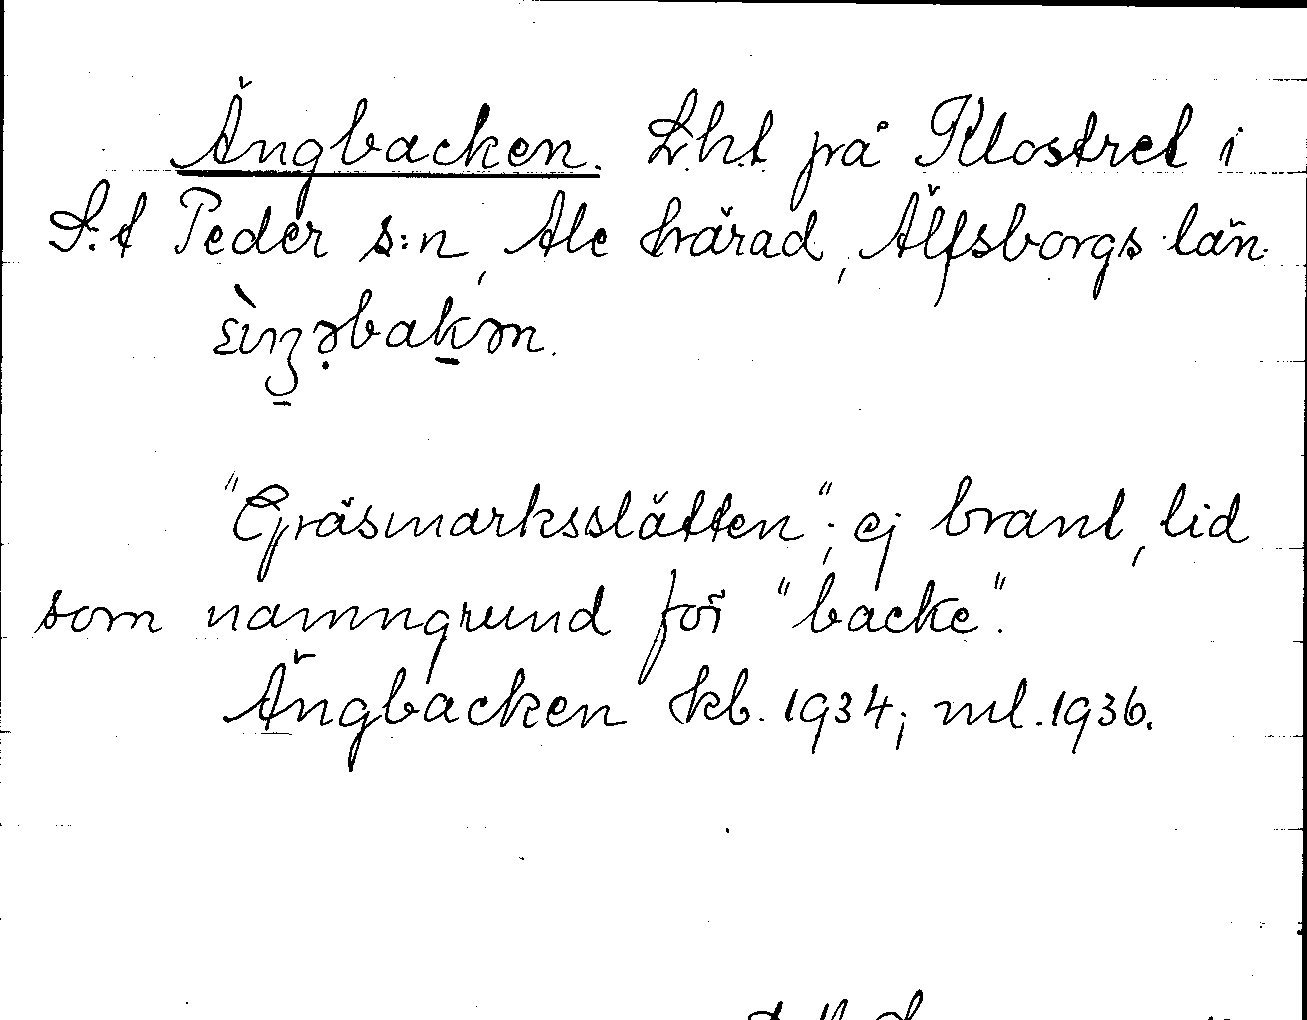 Ängbacken. Lht på Klostret i
S:t Peder s:n, Ale härad, Älfsborgs län.
"Gräsmarksslätten"; ej brant, lid
som namngrund för "backe".
Ängbacken kb. 1934; ml. 1936.